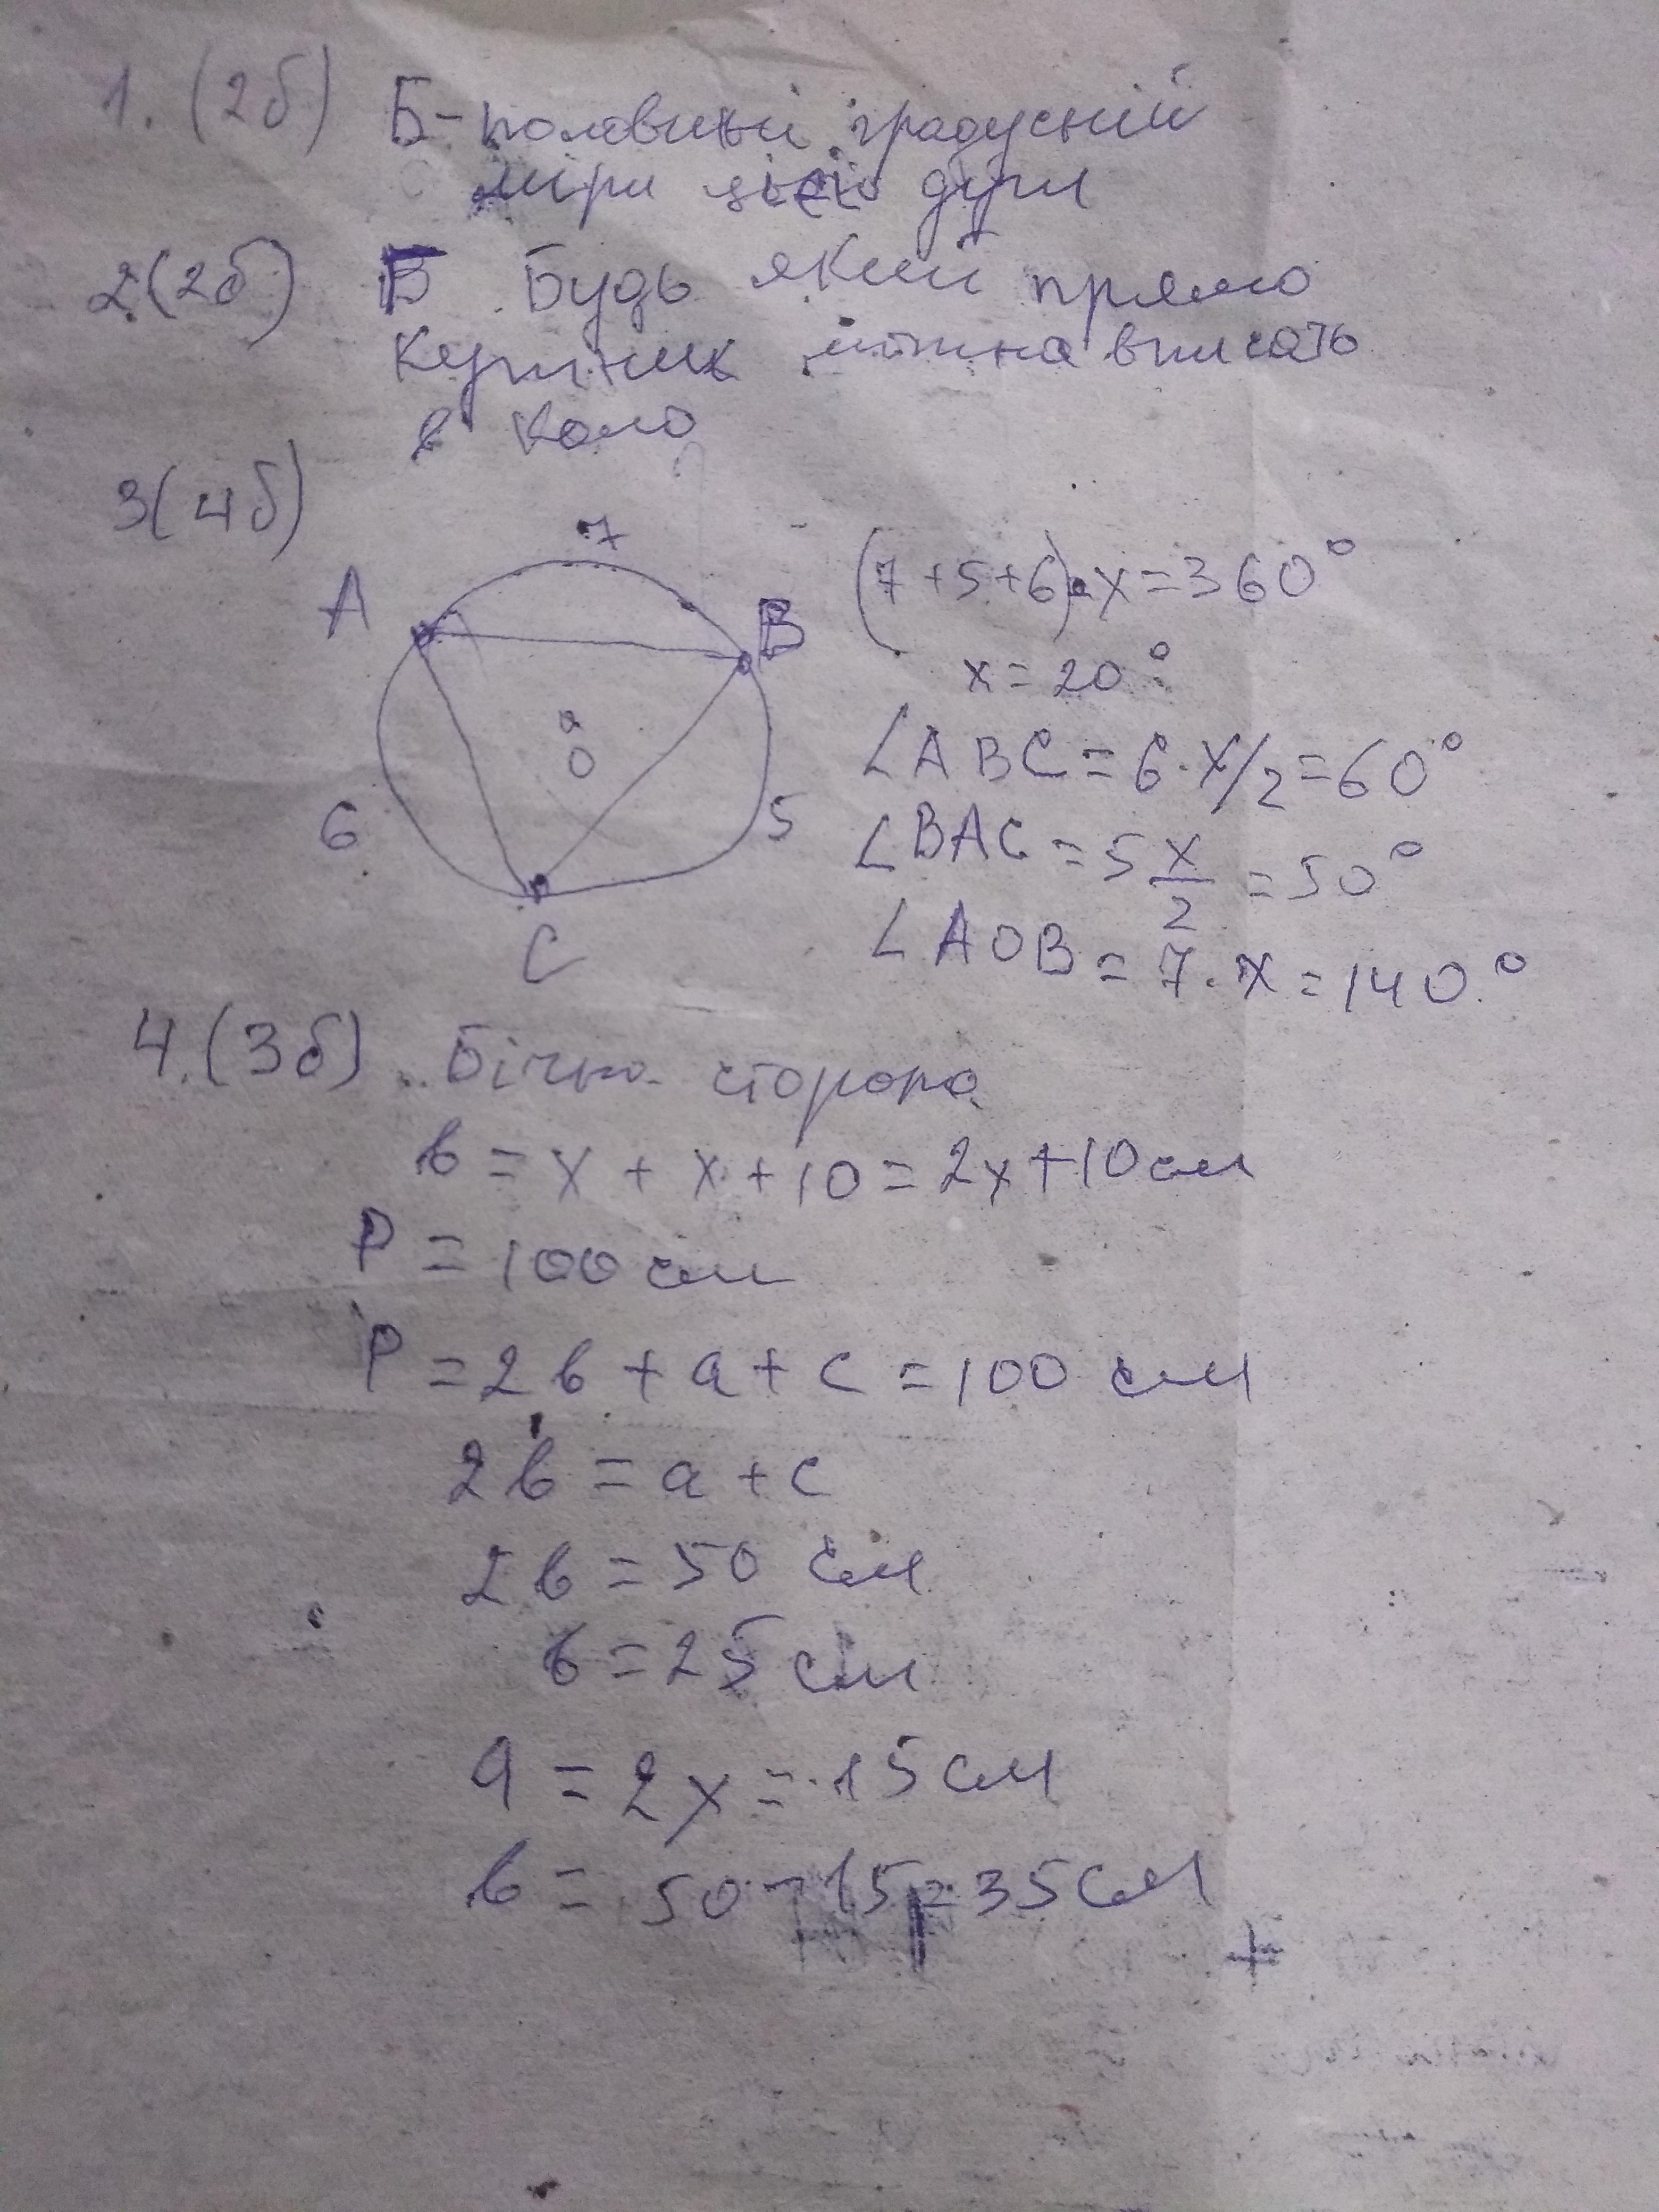 1. (2б) Б - половині градусній
міри цієї дуги
2. (2б) Б Будь який прямо
кутник можна вписать
в коло
3 (4б)
7
A
B
(7+5+6)·x=360°
x=20°
O
∠ABC=6·x/2=60°
6
5
∠BAC=5x/2=50°
C
∠AOB=7·x=140°
4. (3б) Бічна сторона
b=x+x+10=2x+10см
P=100см
P=2b+a+c=100 см
2b=a+c
2b=50 см
b=25см
a=2x=15см
b=50-15=35см
+